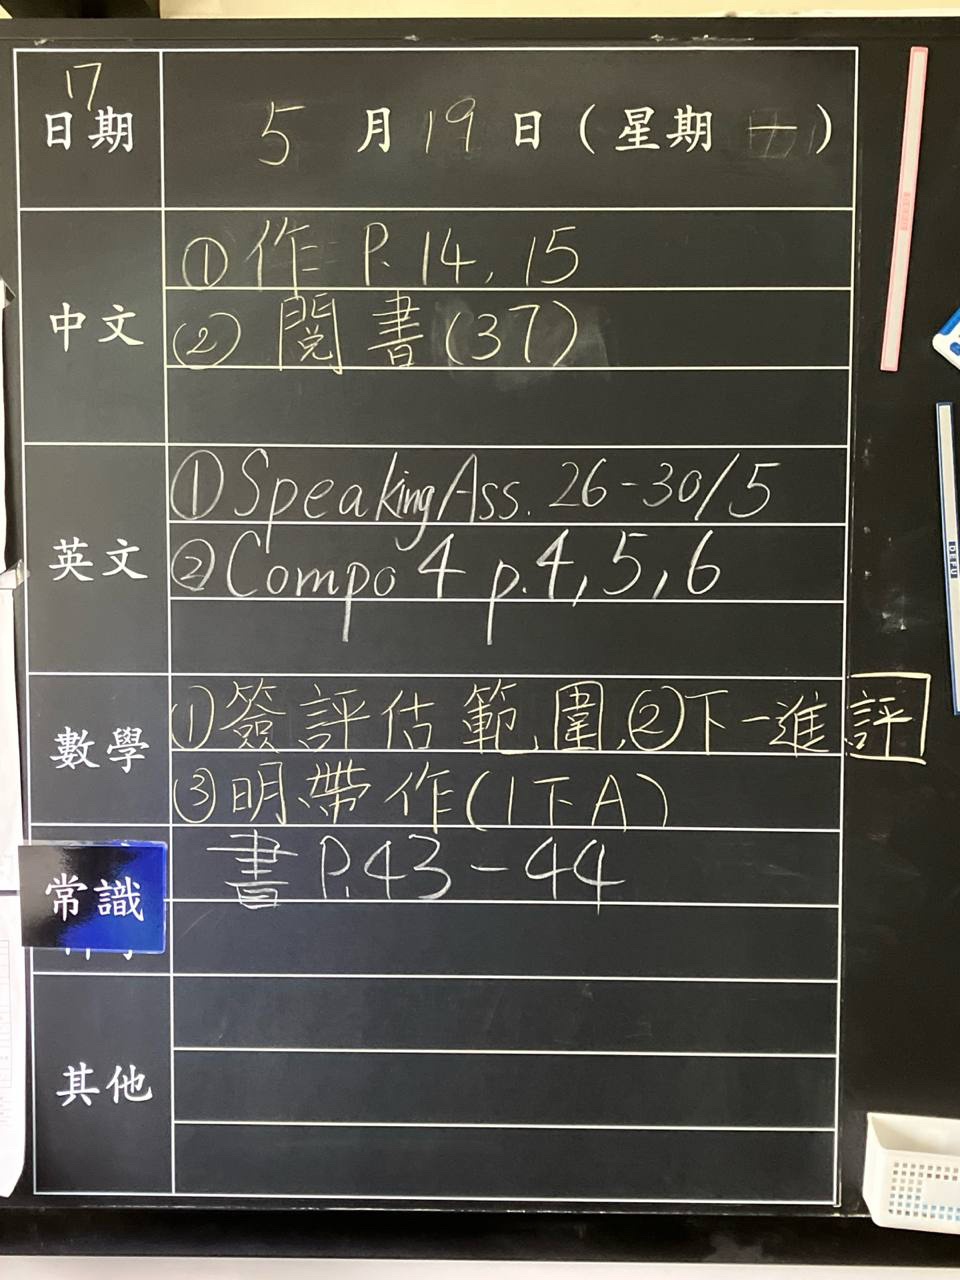 17
日期 5月19日(星期一)
中文 ①作 P.14, 15
②閱書(37)
英文 ①Speaking Ass. 26-30/5
②Compo 4 p.4, 5, 6
數學 ①簽評估範圍, ②下一進評
③明帶作(1下A)
常識 書 P.43-44
其他